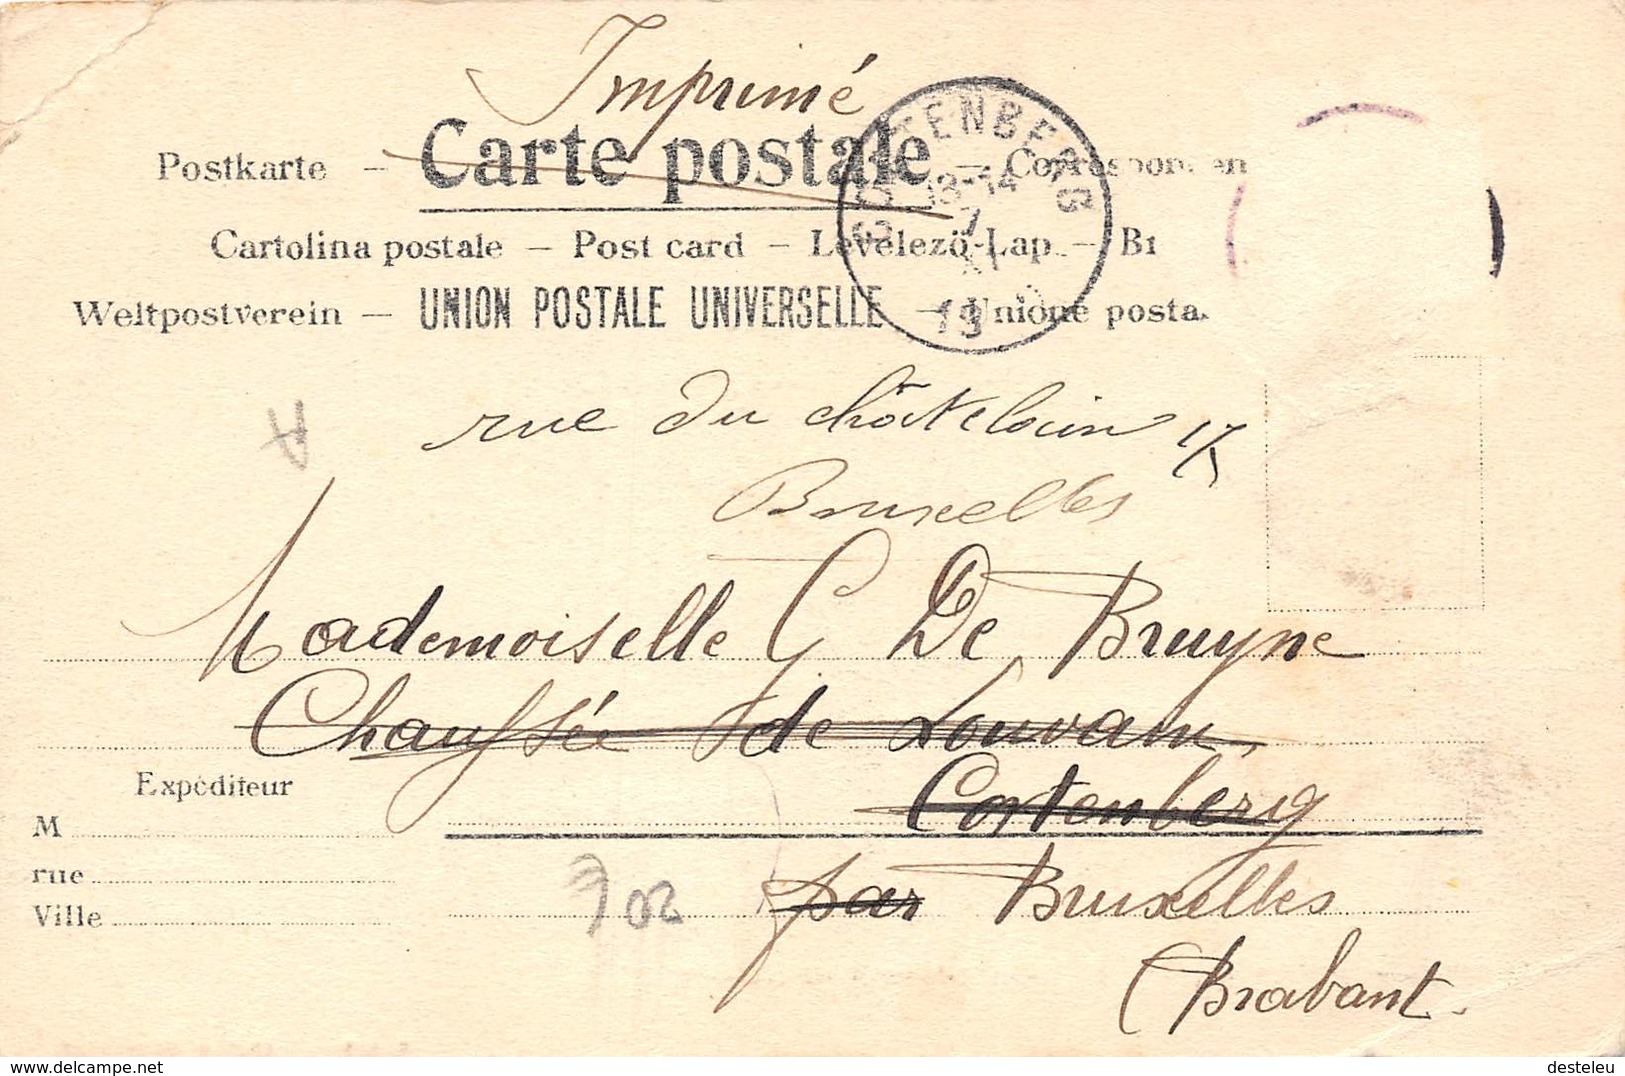 Imprimé
Postkarte — Carte postale — Corresponden
Cartolina postale — Post card — Levelezö-Lap —
Weltpostverein — UNION POSTALE UNIVERSELLE — Unione posta
13-14
7
XI
13
rue du châtelain 17
Bruxelles
Mademoiselle G De Bruyne
Chaussée de Louvain,
Cortenberg
par Bruxelles
(Brabant.
Expéditeur
M
rue
Ville
702
delcampe.net
desteleu